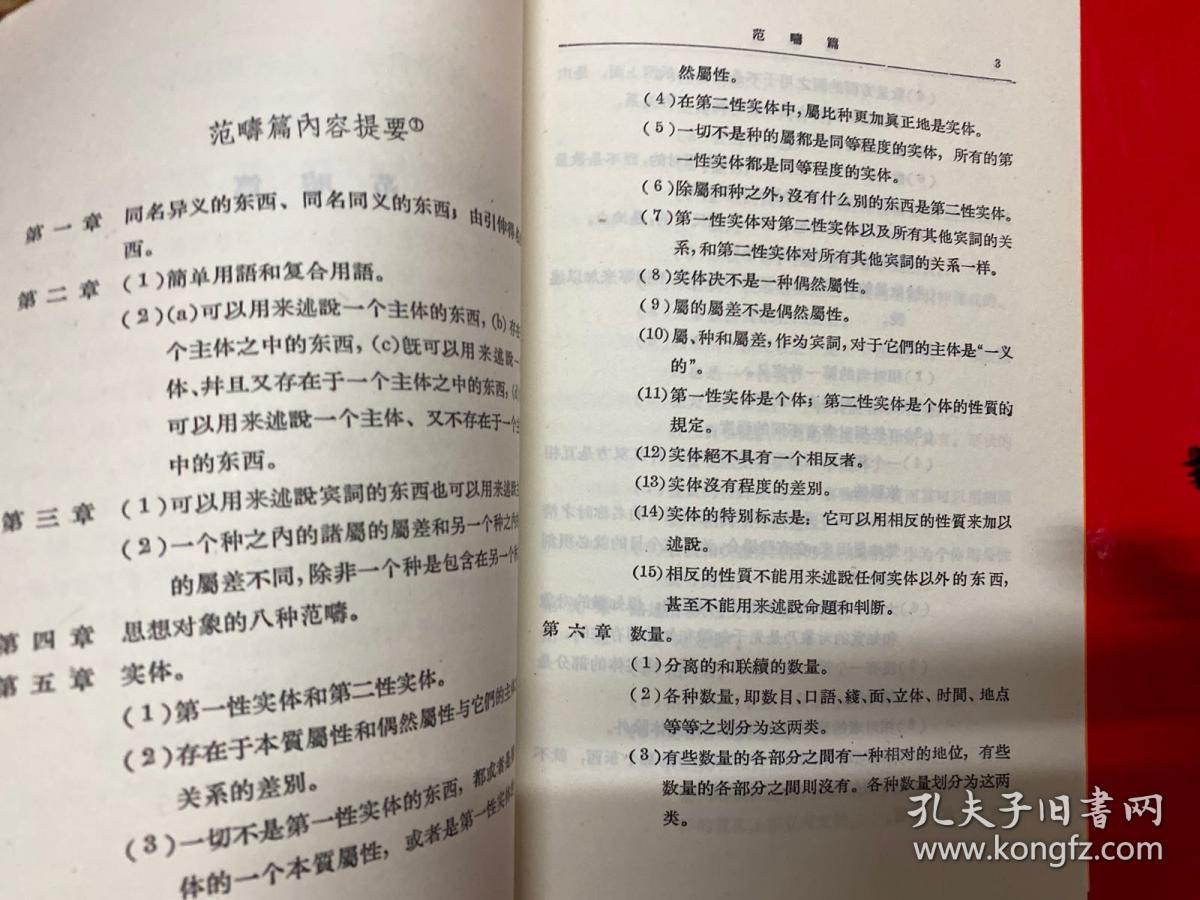 范疇篇內容提要①
第一章 同名异义的东西、同名同义的东西；由引伸得
西。
第二章 (1)簡单用語和复合用語。
(2)(a)可以用来述說一个主体的东西，(b)存
个主体之中的东西，(c)旣可以用来述說一
体、幷且又存在于一个主体之中的东西，(d)
可以用来述說一个主体、又不存在于一个
中的东西。
第三章 (1)可以用来述說宾詞的东西也可以用来述說
(2)一个种之內的諸屬的屬差和另一个种之內
的屬差不同，除非一个种是包含在另一个
第四章 思想对象的八种范疇。
第五章 实体。
(1)第一性实体和第二性实体。
(2)存在于本質屬性和偶然屬性与它們的主体
关系的差別。
(3)一切不是第一性实体的东西，都或者是
体的一个本質屬性，或者是第一性实体
范疇篇 3
然屬性。
(4)在第二性实体中，屬比种更加眞正地是实体。
(5)一切不是种的屬都是同等程度的实体，所有的第
一性实体都是同等程度的实体。
(6)除屬和种之外，沒有什么別的东西是第二性实体。
(7)第一性实体对第二性实体以及所有其他宾詞的关
系，和第二性实体对所有其他宾詞的关系一样。
(8)实体决不是一种偶然屬性。
(9)屬的屬差不是偶然屬性。
(10)屬、种和屬差，作为宾詞，对于它們的主体是“一义
的”。
(11)第一性实体是个体；第二性实体是个体的性質的
規定。
(12)实体絕不具有一个相反者。
(13)实体沒有程度的差別。
(14)实体的特別标志是：它可以用相反的性質来加以
述說。
(15)相反的性質不能用来述說任何实体以外的东西，
甚至不能用来述說命題和判断。
第六章 数量。
(1)分离的和联續的数量。
(2)各种数量，即数目、口語、綫、面、立体、时間、地点
等等之划分为这两类。
(3)有些数量的各部分之間有一种相对的地位，有些
数量的各部分之間則沒有。各种数量划分为这两
类。
孔夫子旧书网
www.kongfz.com